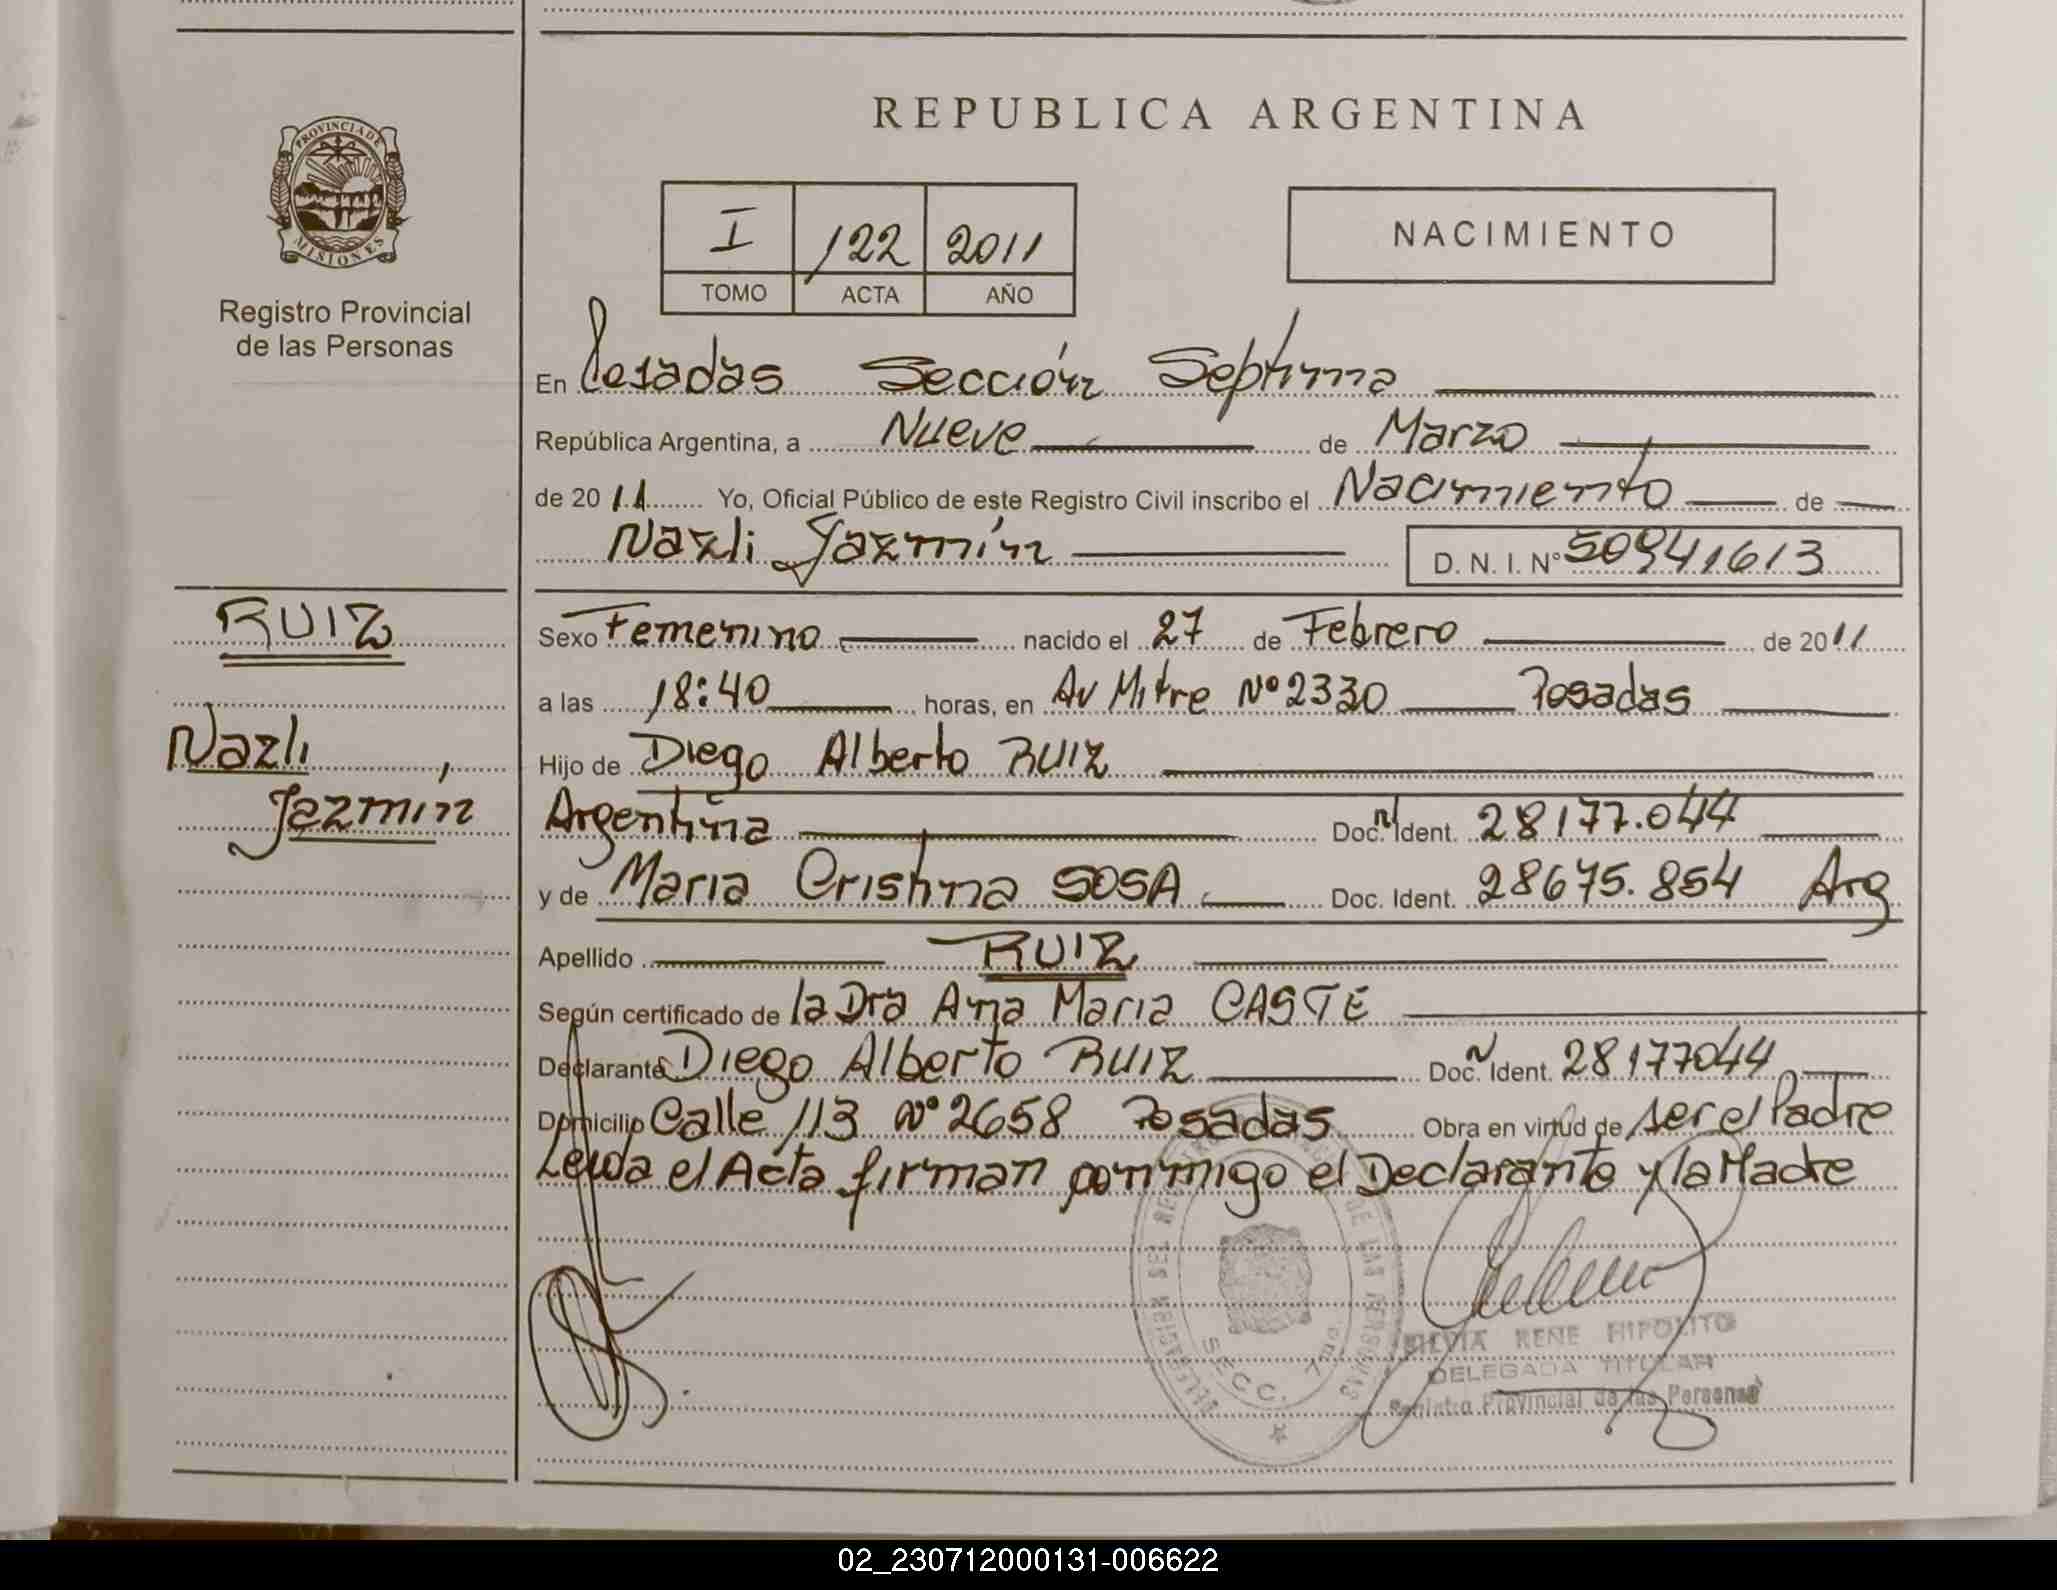 REPUBLICA ARGENTINA
PROVINCIA DE MISIONES
Registro Provincial
de las Personas
I 122 2011
TOMO ACTA AÑO
NACIMIENTO
En Posadas Sección Septima
República Argentina, a Nueve de Marzo
de 2011 Yo, Oficial Público de este Registro Civil inscribo el Nacimiento de
Nazli Jazmín D. N. I. Nº 50941613
RUIZ
Nazli,
Jazmín
Sexo Femenino nacido el 27 de Febrero de 2011
a las 18:40 horas, en Av Mitre Nº 2330 Posadas
Hijo de Diego Alberto RUIZ
Argentina Doc. N Ident. 28177.044
y de Maria Cristina SOSA Doc. Ident. 28675.854 Arg
Apellido RUIZ
Según certificado de la Dra Ana Maria CASTE
Declarante Diego Alberto RUIZ Doc. N Ident. 28177044
Domicilio Calle 113 Nº 2658 Posadas Obra en virtud de ser el Padre
Leida el Acta firman conmigo el Declarante y la Madre
SECC. 7ma.
SILVIA RENE HIPOLITO
DELEGADA TITULAR
Registro Provincial de las Personas
02_230712000131-006622